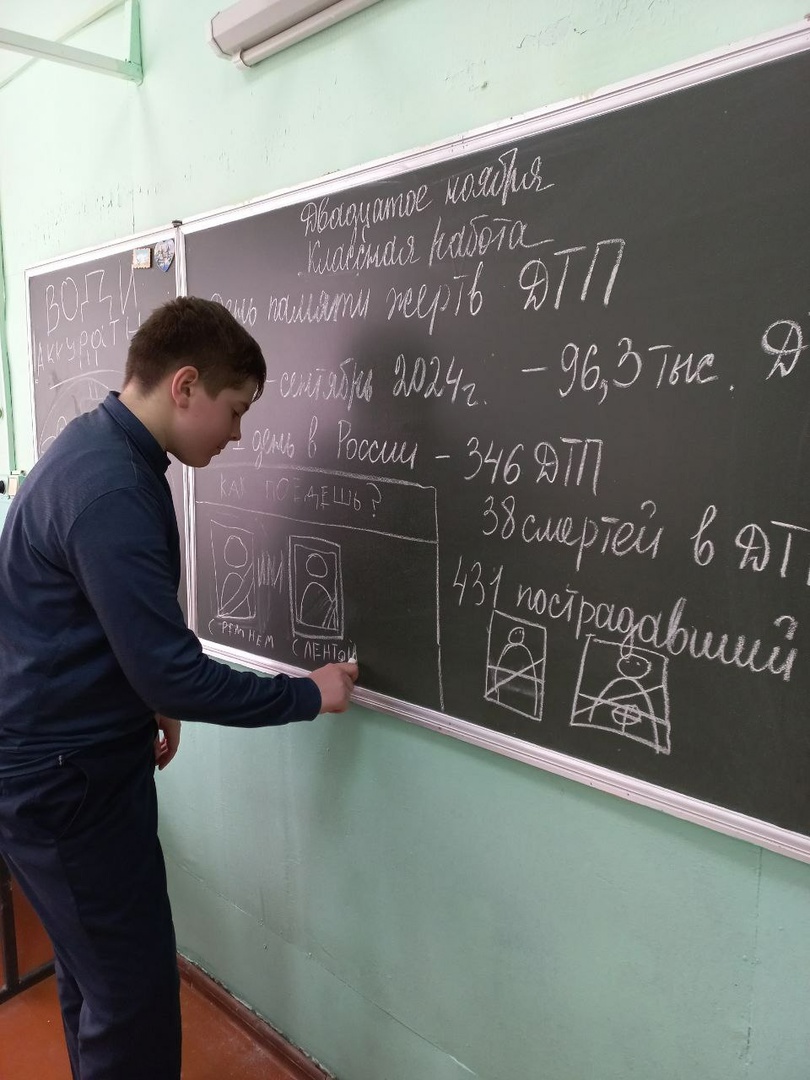 ВОДИ
Аккуратн
Двадцатое ноября
Классная работа
День памяти жертв ДТП
- сентябрь 2024г. - 96,3 тыс. Д
1 день в России - 346 ДТП
38 смертей в ДТП
431 пострадавший
КАК ПОЕДЕШЬ?
ИЛИ
С РЕМНЕМ
С ЛЕНТОЙ